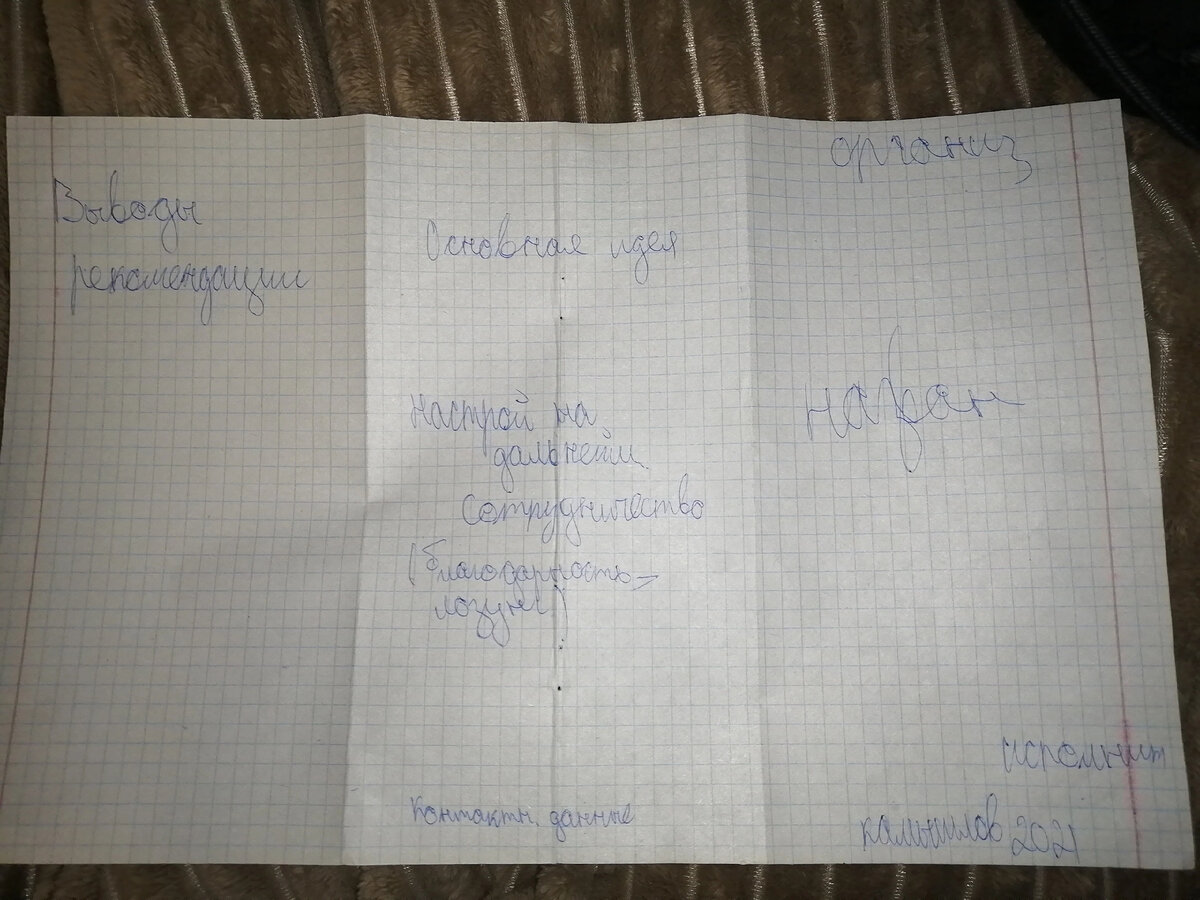 Выводы
рекомендации
Основная идея
настрой на
дальнейш.
сотрудничество
(благодарность=
лозунг)
Контактн. данные
организ
исполнит
камышлов 2021